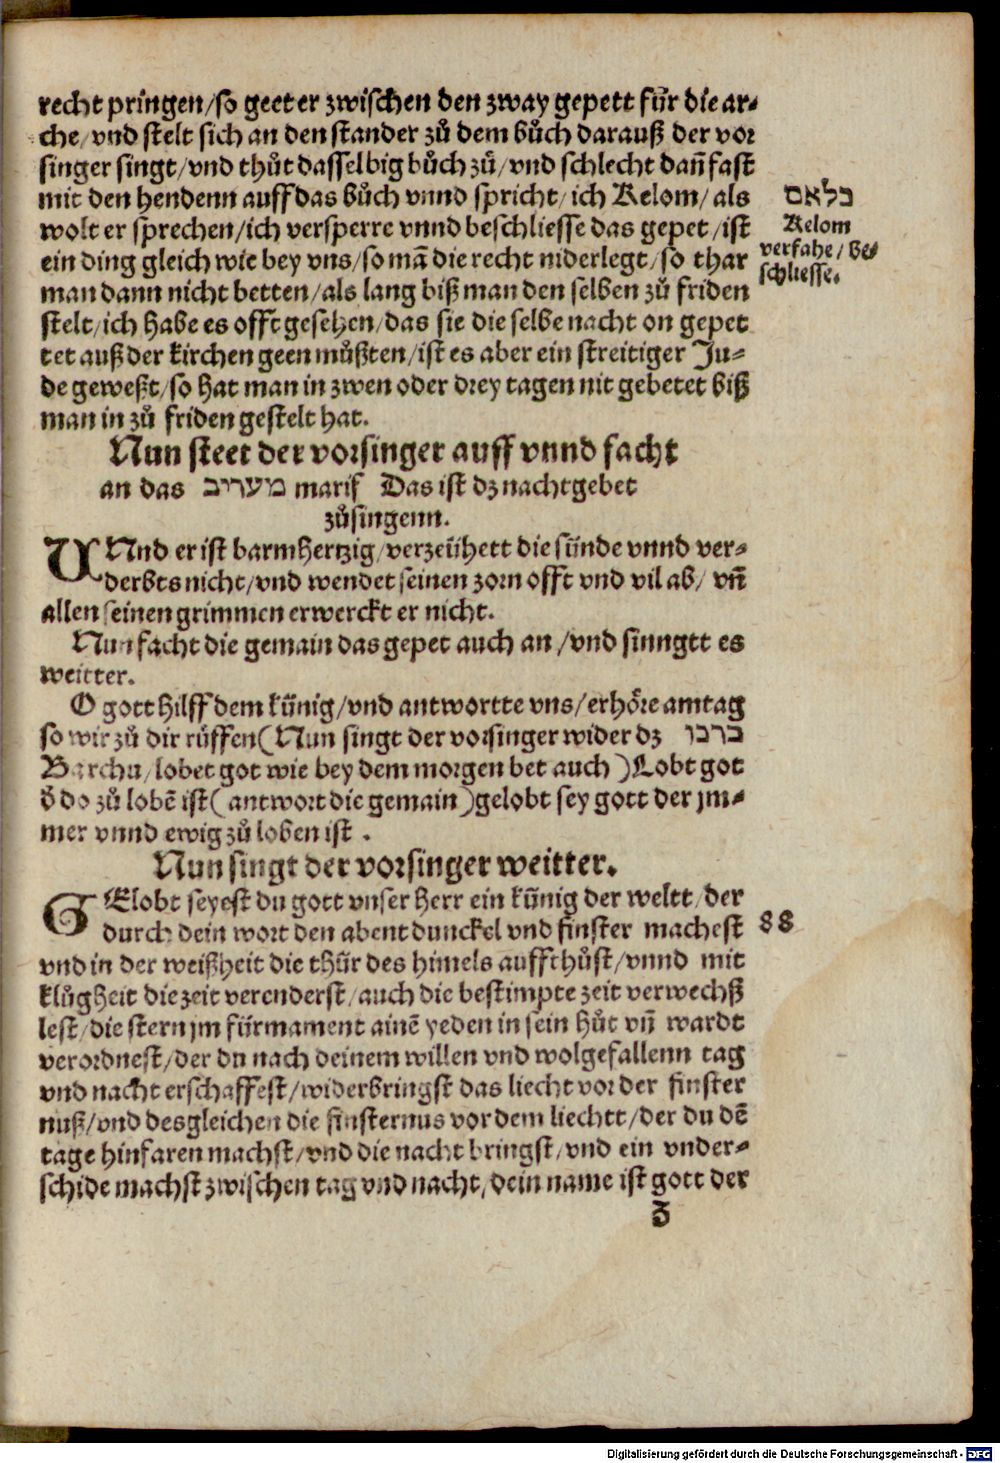 recht pringen/so geet er zwischen den zway gepett für die ar-
che/vnd stelt sich an den stander zů dem bůch darauß der vor
singer singt/vnd thůt dasselbig bůch zů/vnd schlecht dañ fast
mit den hendenn auff das bůch vnnd spricht/ich Kelom/als
wolt er sprechen/ich versperre vnnd beschliesse das gepet/ist
ein ding gleich wie bey vns/so mā die recht niderlegt/so thar
man dann nicht betten/als lang biß man den selben zů friden
stelt/ich habe es offt gesehen/das sie die selbe nacht on gepet
tet auß der kirchen geen můßten/ist es aber ein streitiger Ju-
de geweßt/so hat man in zwen oder drey tagen nit gebetet biß
man in zů friden gestelt hat.
כלאם
Kelom
verfahe/be-
schliesse.
Nun steet der vorsinger auff vnnd facht
an das מעריב marif Das ist dz nachtgebet
zůsingenn.
VNnd er ist barmhertzig/verzeühett die sünde vnnd ver-
derbts nicht/vnd wendet seinen zorn offt vnd vil ab/ vñ
allen seinen grimmen erwerckt er nicht.
Nun facht die gemain das gepet auch an/vnd sinngtt es
weitter.
O gott hilff dem künig/vnd antwortte vns/erhöre am tag
so wir zů dir rüffen(Nun singt der vorsinger wider dz ברכו
Barchu/lobet got wie bey dem morgen bet auch)Lobt got
d̕ do zů lobē ist(antwort die gemain)gelobt sey gott der jm-
mer vnnd ewig zů loben ist.
Nun singt der vorsinger weitter.
GElobt seyest du gott vnser herr ein künig der weltt/der
durch dein wort den abent dunckel vnd finster machest
88
vnd in der weißheit die thür des himels auffthůst/vnnd mit
klůgheit die zeit verenderst/auch die bestimpte zeit verwechß
lest/die stern jm fürmament ainē yeden in sein hůt vñ wardt
verordnest/der du nach deinem willen vnd wolgefallenn tag
vnd nacht erschaffest/widerbringst das liecht vor der finster
nuß/vnd desgleichen die finsternus vor dem liechtt/der du dē
tage hinfaren machst/vnd die nacht bringst/vnd ein vnder-
schide machst zwischen tag vnd nacht/dein name ist gott der
Z
Digitalisierung gefördert durch die Deutsche Forschungsgemeinschaft - DFG